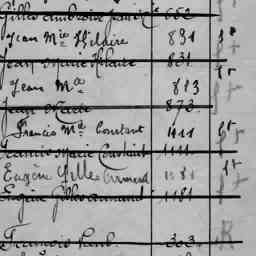 Gilles Ambroise 662
Jean Mie Hilaire 831 1º
Jean Marie Hilaire 831
Jean Mie 873
Jean Marie 873
Francis Mie Constant 1111
Francis Marie Constant 1111
Eugène Gilles Armand 1181
Eugène Gilles Armand 1181
Francois Paul 303 R